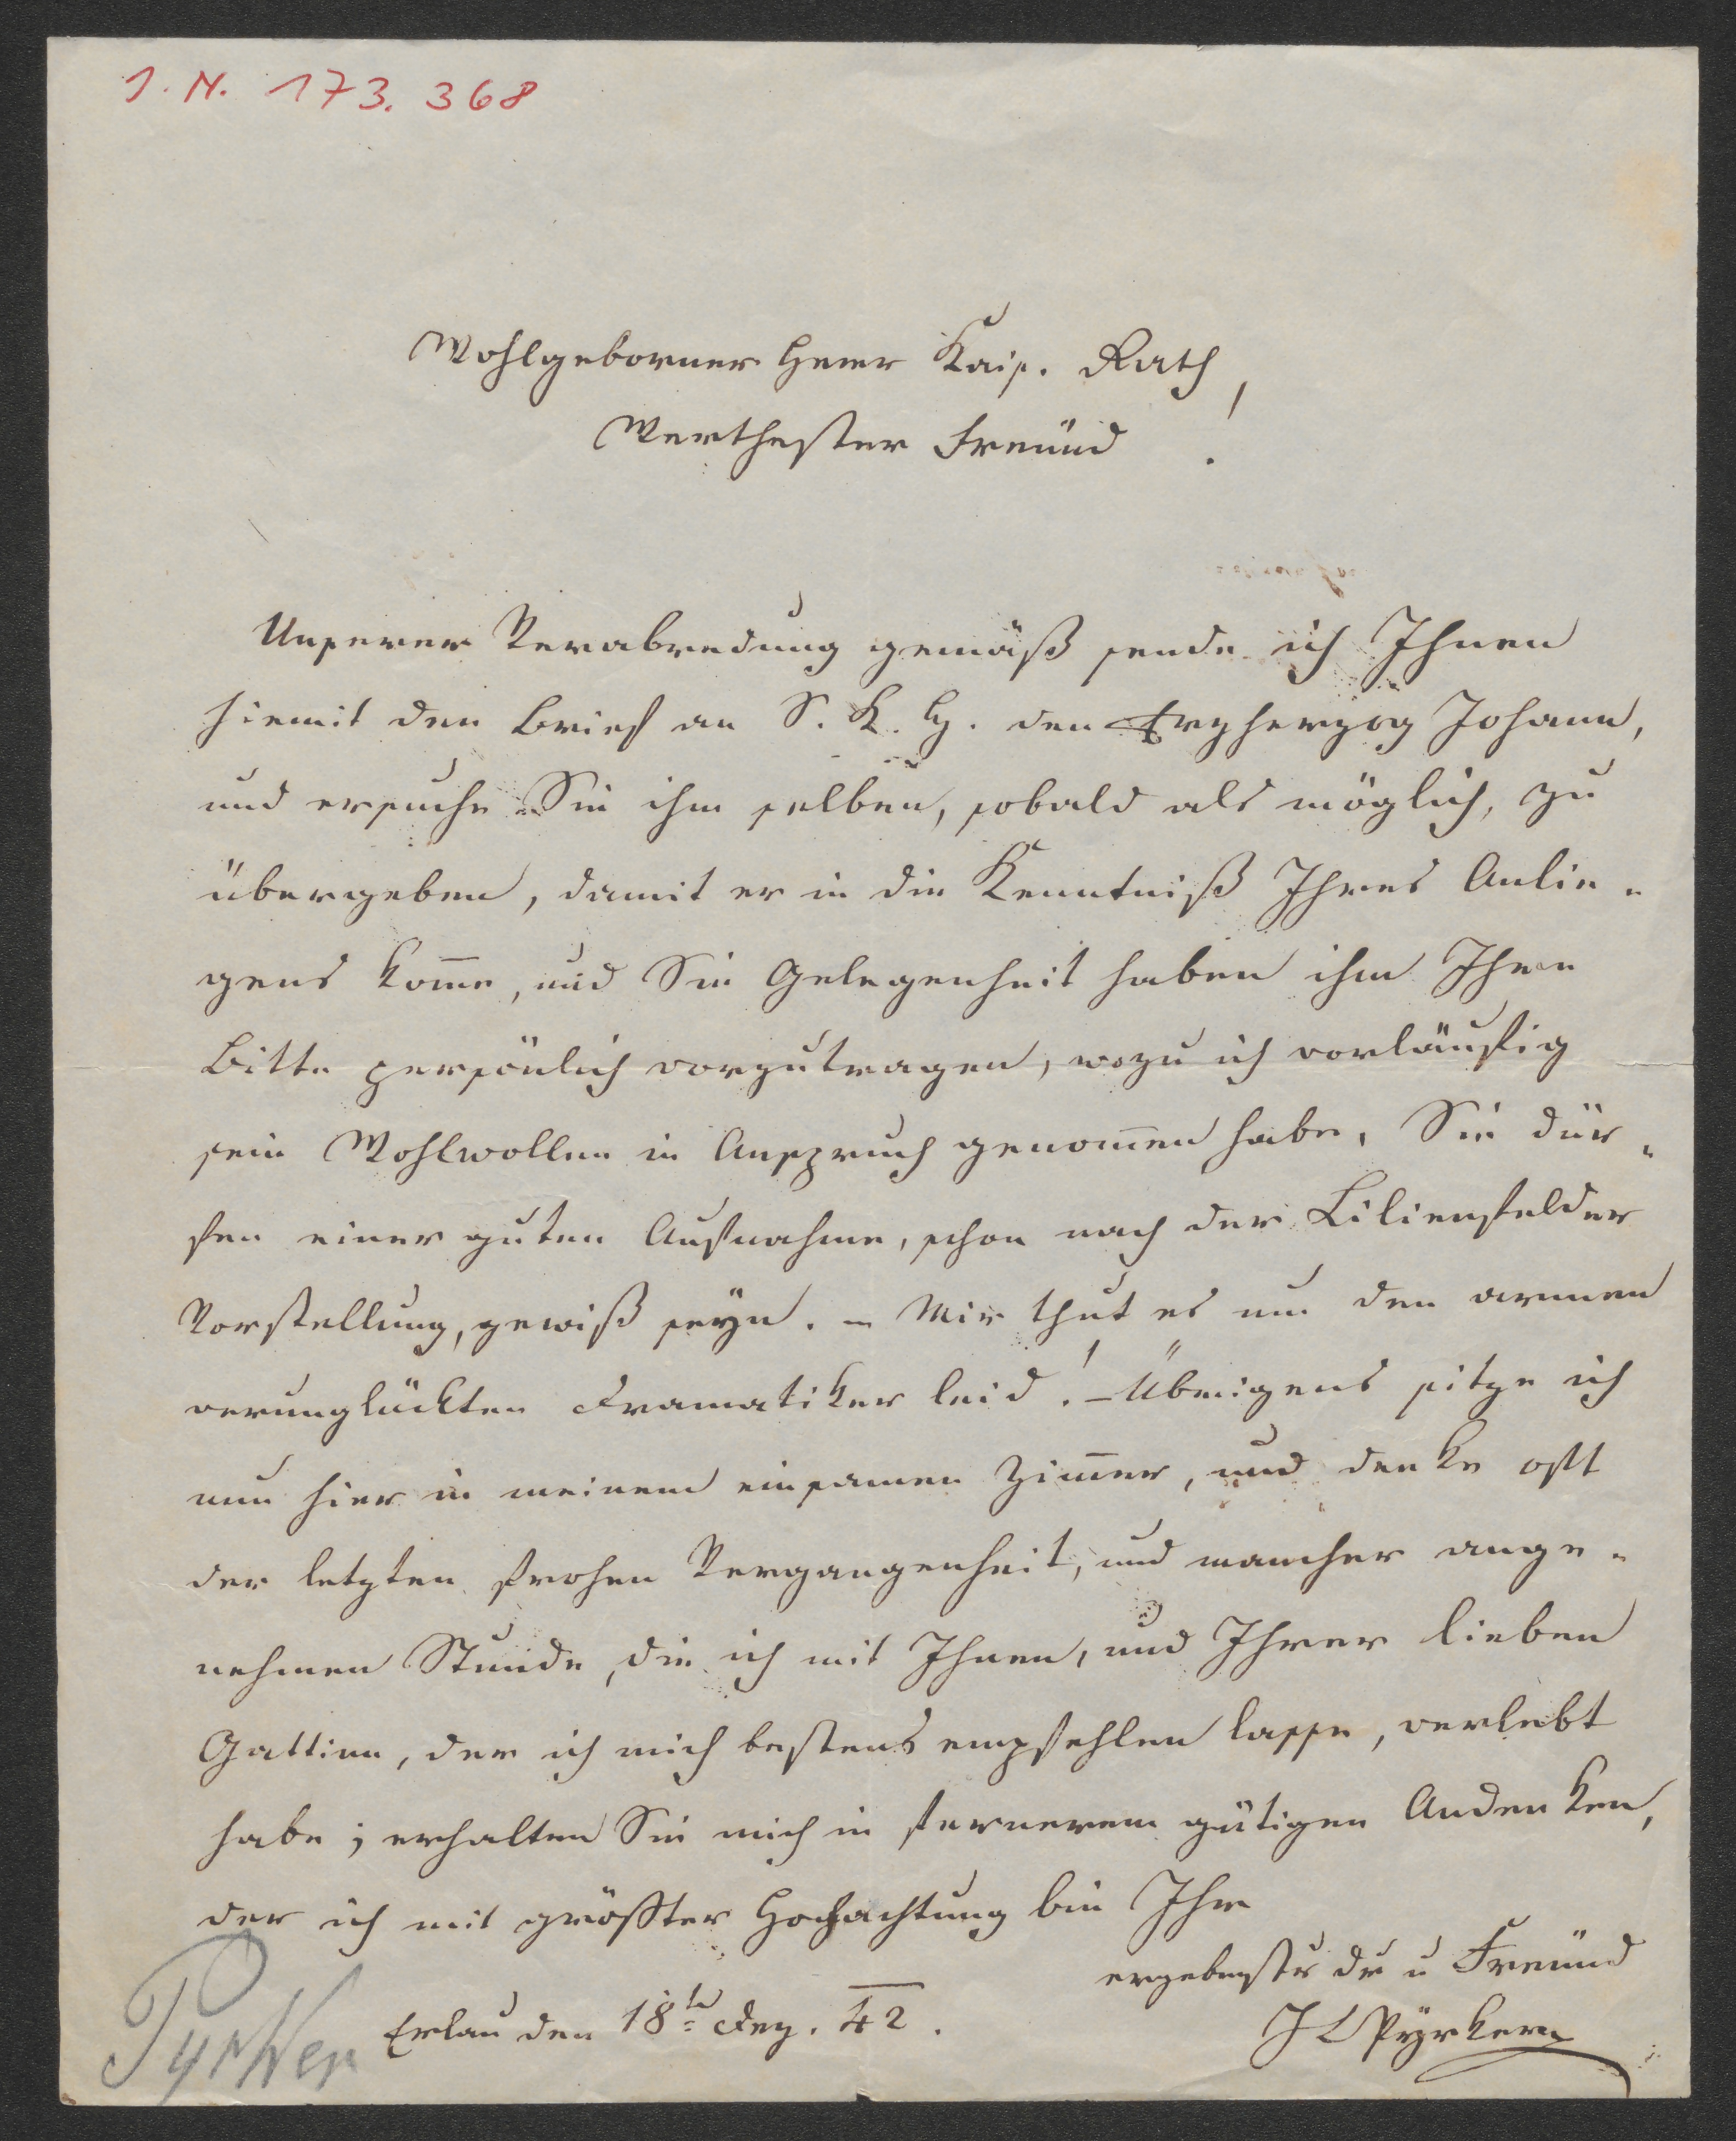 J. N. 173.368
Wohlgeborner Herr Kais. Rath,
Werthester Freund!
Unserer Verabredung gemäß sende ich Ihnen
hiemit den Brief an S. K. H. den Erzherzog Johann,
und ersuche Sie ihm selben, sobald als möglich, zu
übergeben, damit er in die Kenntniß Ihres Anlie-
gens kom̅e, und Sie Gelegenheit haben ihm Ihre
Bitte persönlich vorzutragen, wozu ich vorläufig
sein Wohlwollen in Anspruch genom̅en habe. Sie dür-
fen einer guten Aufnahme, schon nach der Lilienfelder
Vorstellung, gewiß seyn. – Mir thut es um den armen
verunglückten Dramatiker leid! – Übrigens sitze ich
nun hier in meinem einsamen Zim̅er, und denke oft
der letzten frohen Vergangenheit, und mancher ange-
nehmen Stunde, die ich mit Ihnen, und Ihrer lieben
Gattinn, der ich mich bestens empfehlen lasse, verlebt
habe; erhalten Sie mich in fernerem gütigen Andenken,
der ich mit größter Hochachtung bin Ihr
ergebenster Dr u Freund
Erlau den 18te Dez. 42.
J L Pyrker
Pyrker